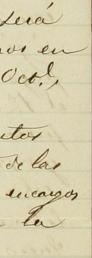 será
nos en
Octe.
ntos
de las
encargos
la